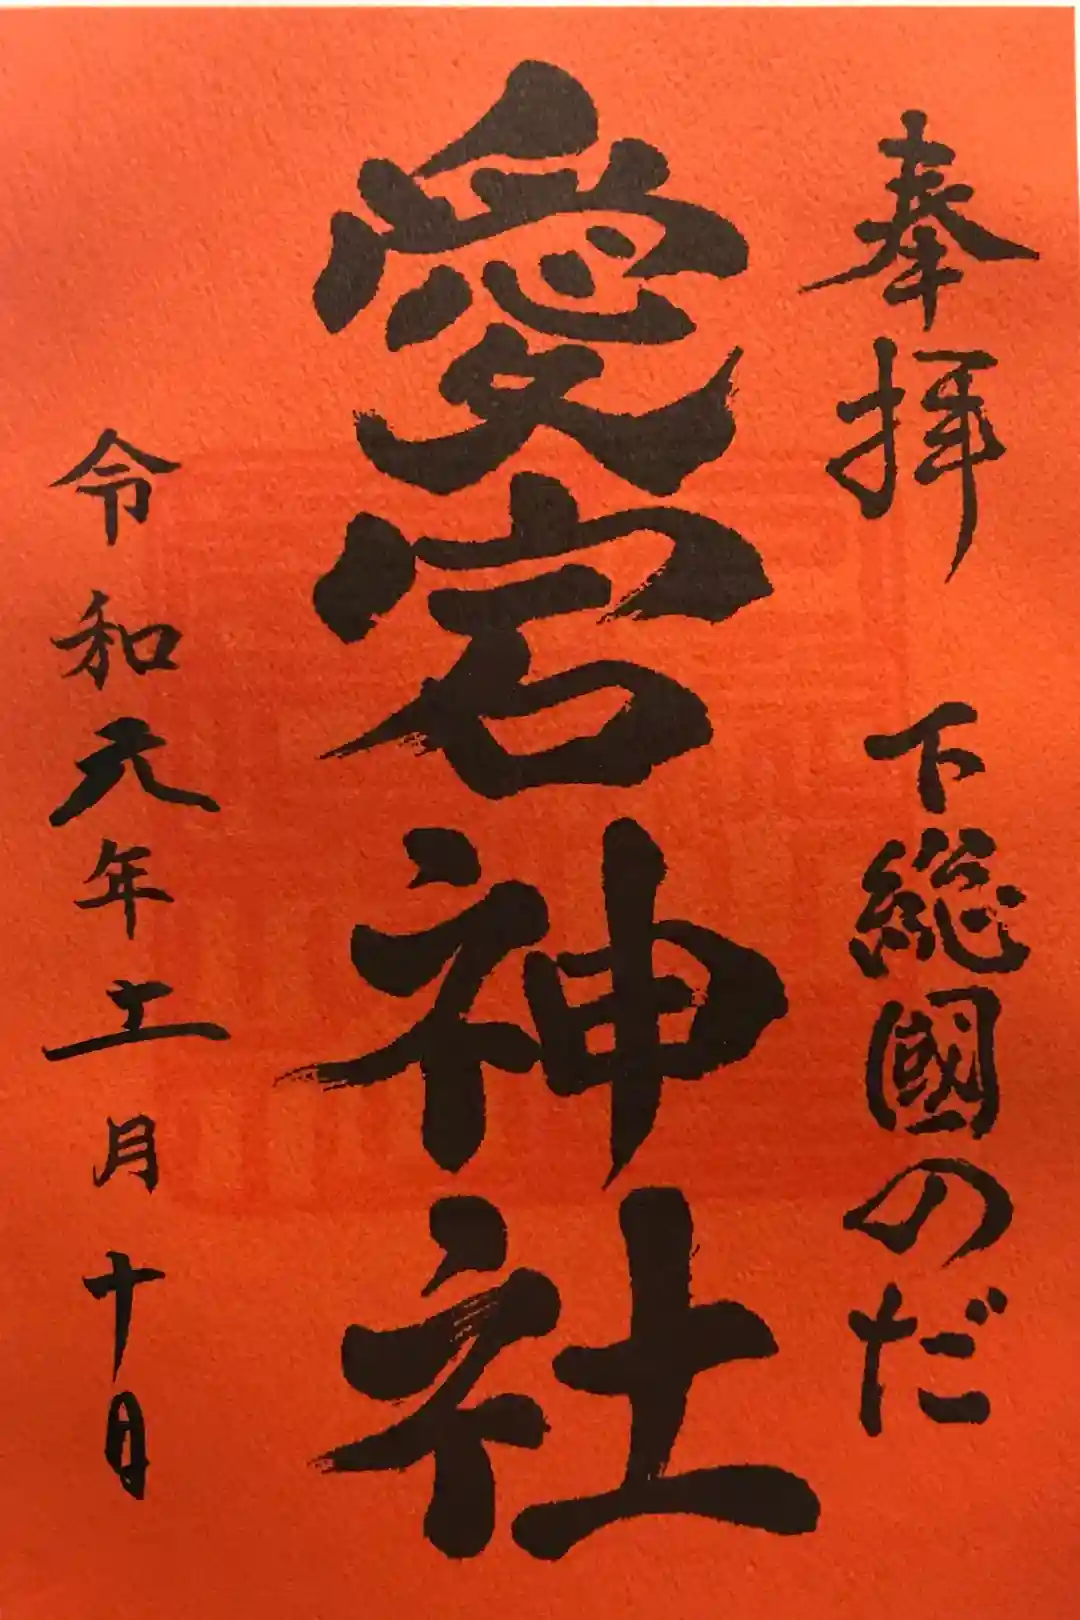 奉拝　下総國のだ
愛宕神社
令和元年十一月十日